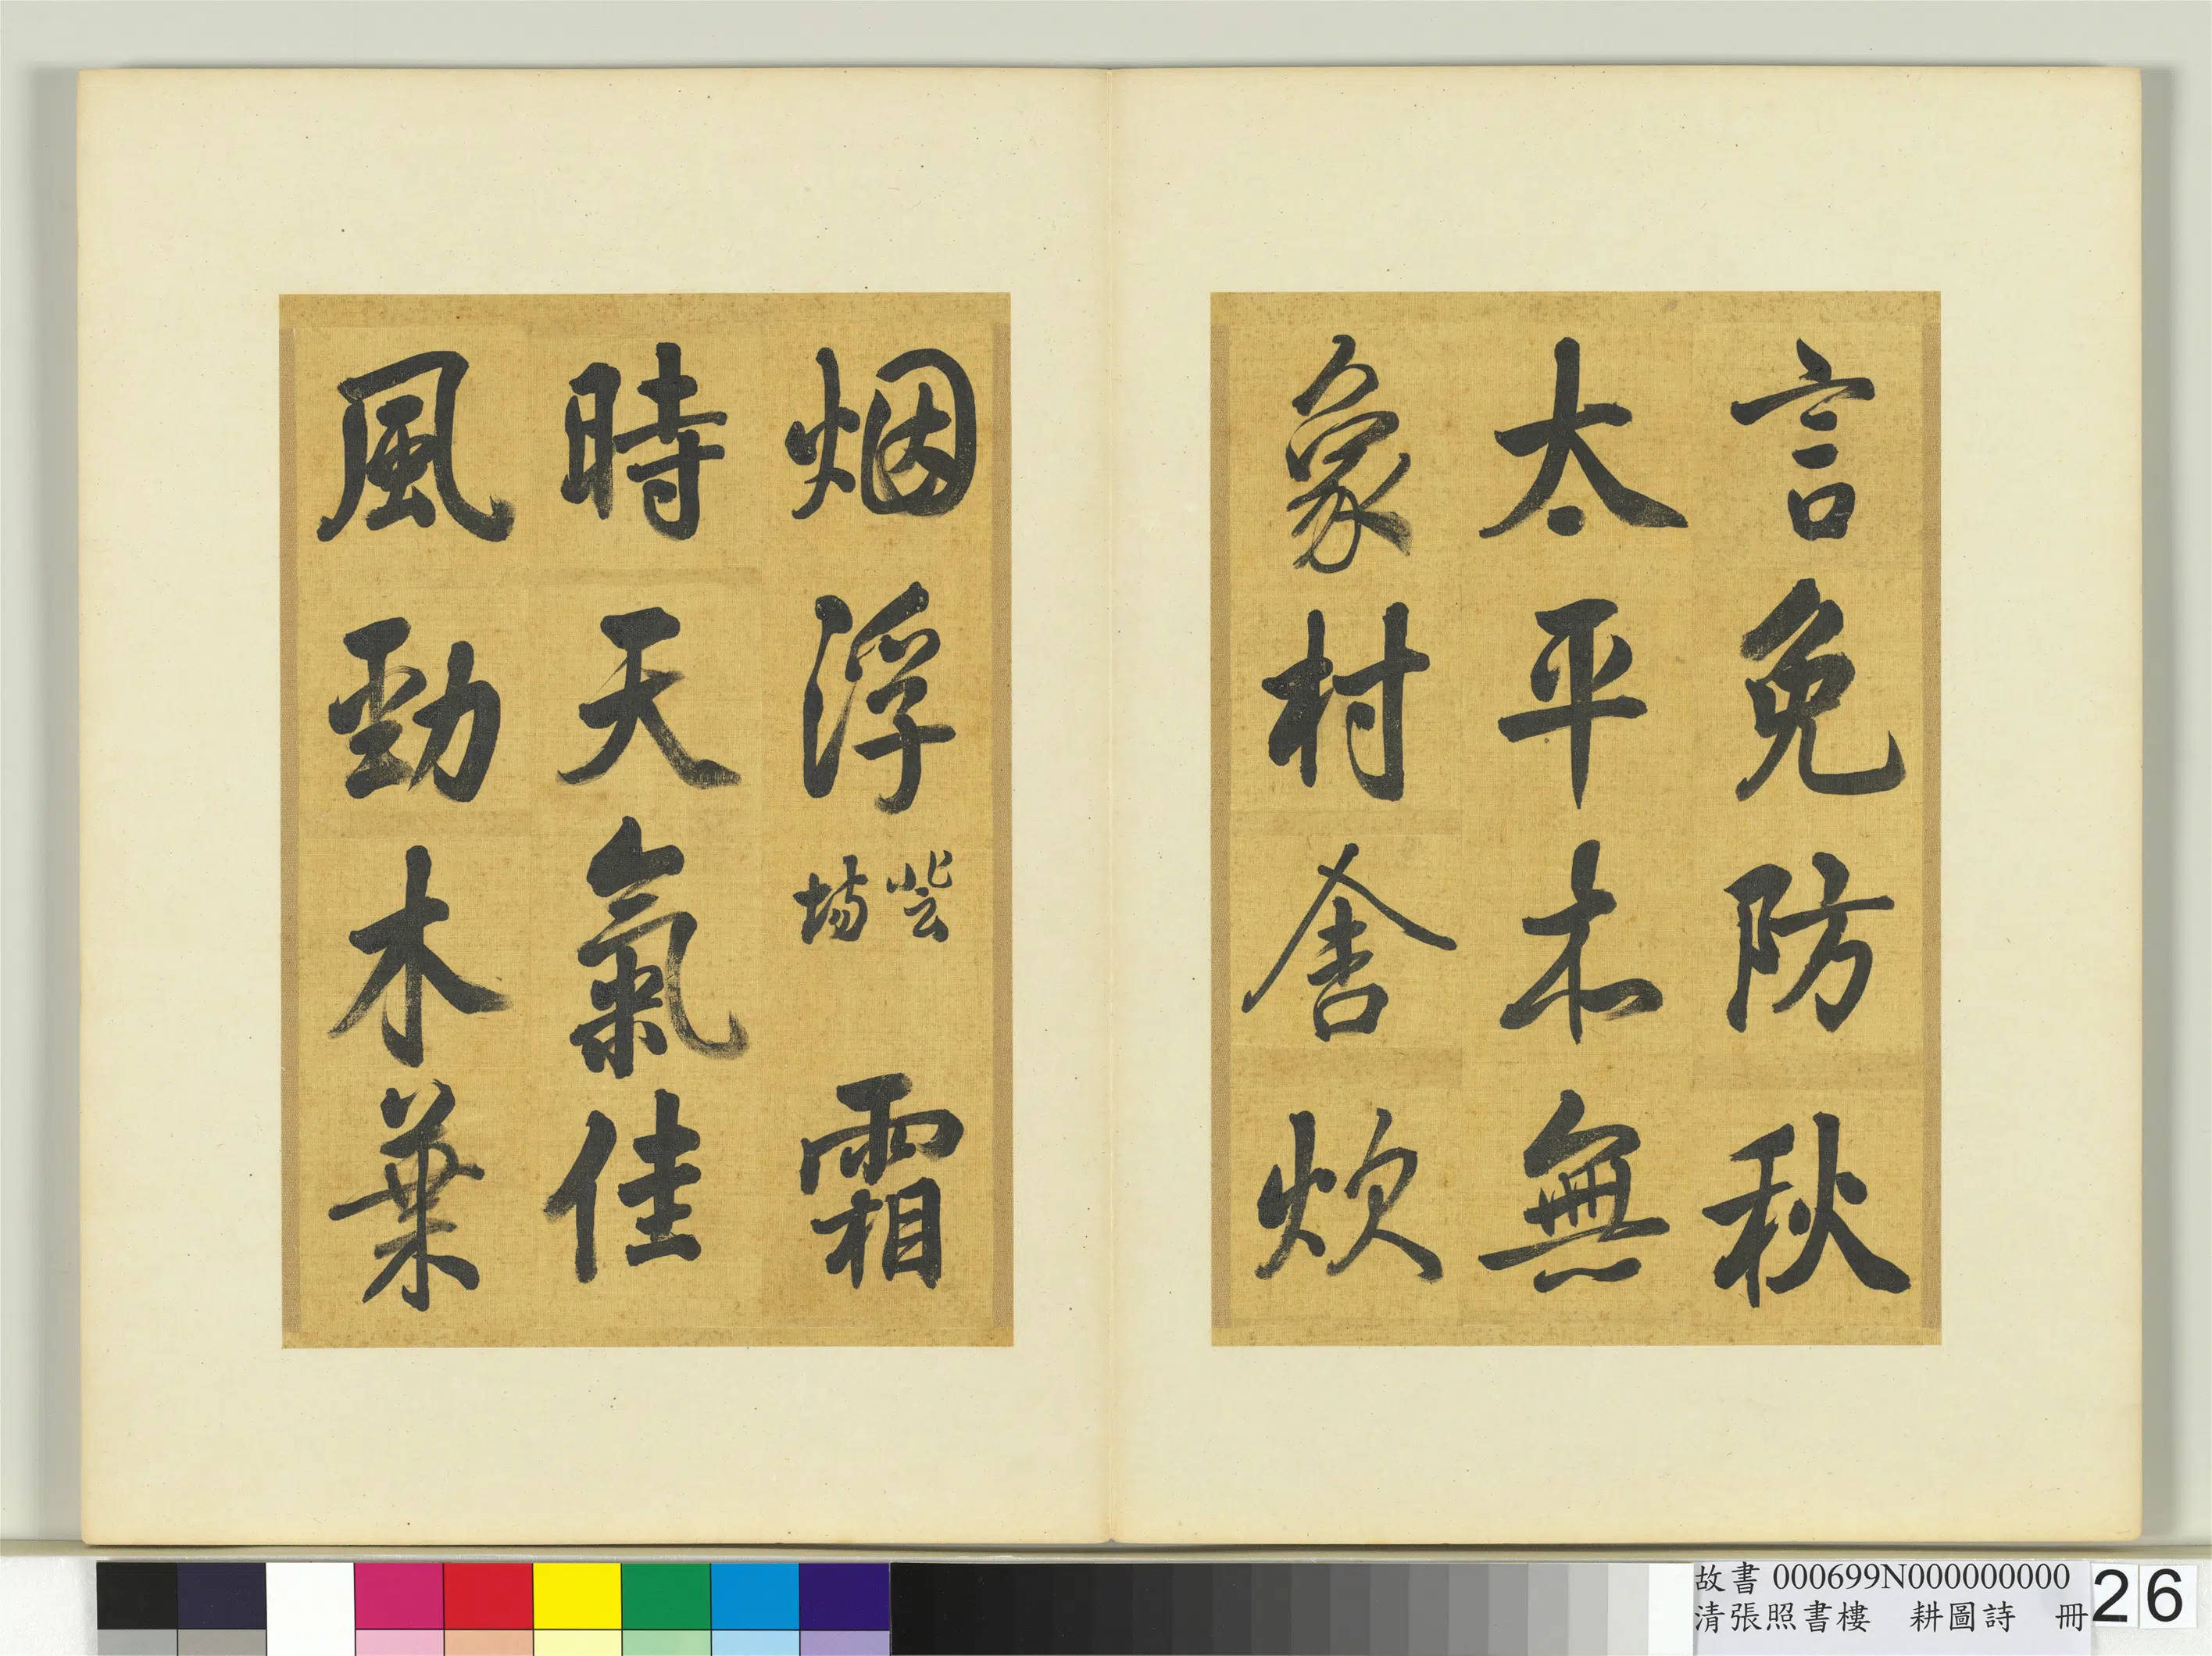 言免防秋
太平本無
象村舍炊
烟浮 登場 霜
時天氣佳
風勁木葉
故書 000699N000000000
清張照書樓　耕圖詩　冊
26